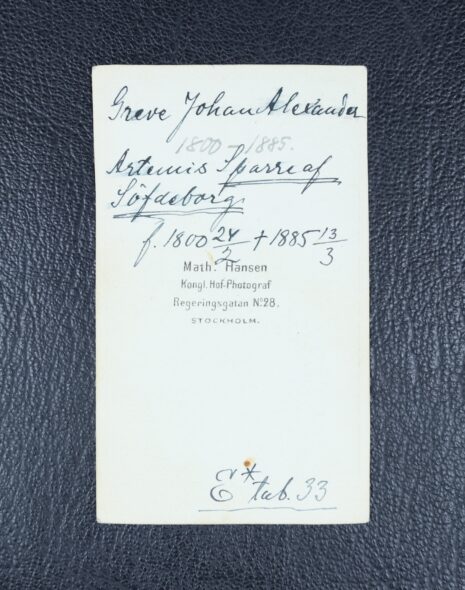 Greve Johan Alexander
1800 - 1885.
Artemis Sparre af
Söfdeborg
f. 1800 24/2 + 1885 13/3
Math. Hansen
Kongl. Hof-Photograf
Regeringsgatan No 28.
STOCKHOLM.
E* tab. 33